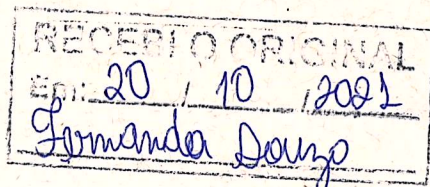 RECEBI O ORIGINAL
Em: 20 / 10 / 2021
Fernanda Souza